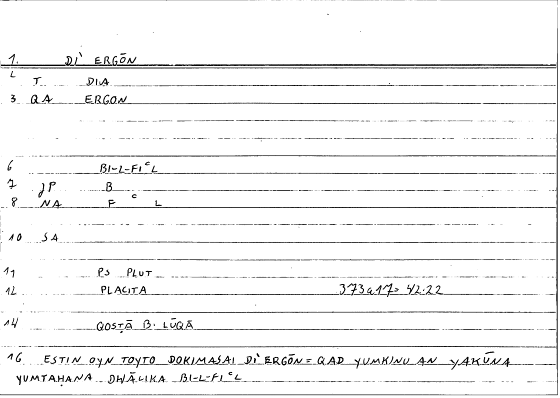 1. DI' ERGŌN
2 T DIA
3 QA ERGON
6 BI-L-FIᶜL
7 JP B
8 NA F ᶜ L
10 SA
11 PS PLUT
12 PLACITA 373a17= 42.22
14 QOSṬĀ B. LŪQĀ
16 ESTIN OYN TOYTO DOKIMASAI DI' ERGŌN = QAD YUMKINU AN YAKŪNA
YUMTAḤANA DHĀLIKA BI-L-FIᶜL